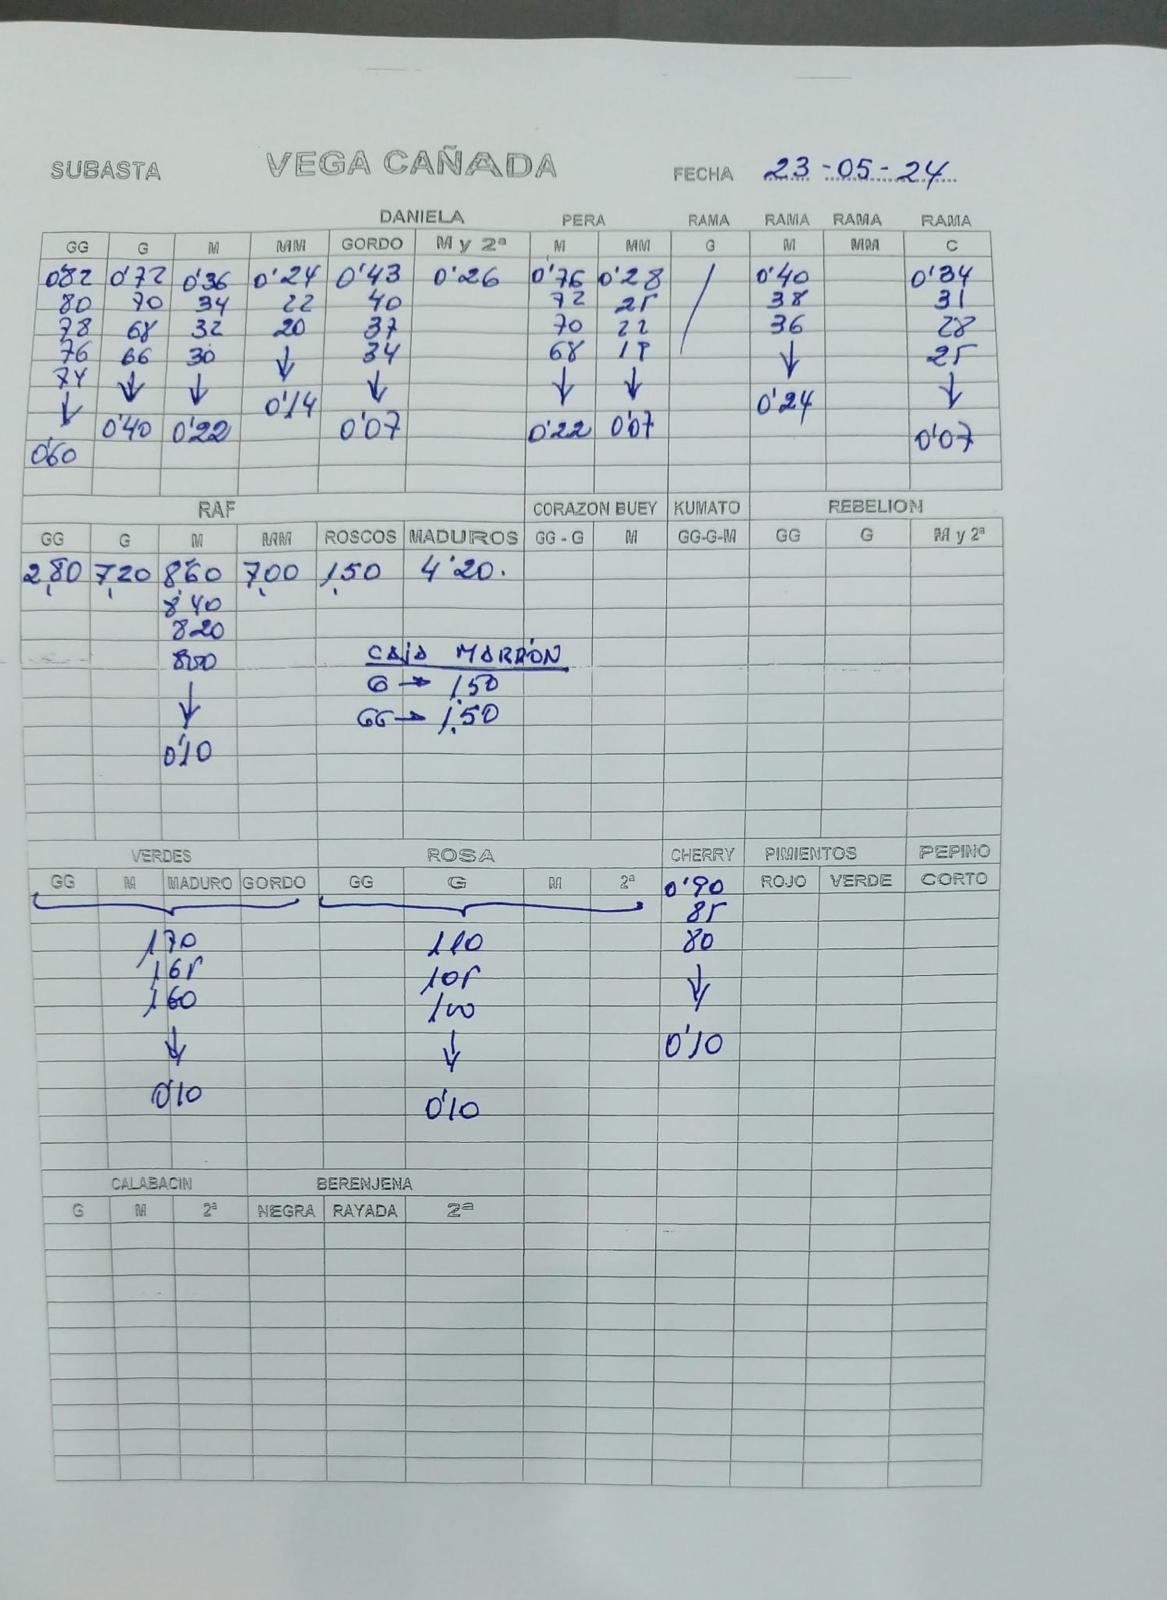 SUBASTA VEGA CAÑADA FECHA 23-05-24
DANIELA PERA RAMA RAMA RAMA RAMA
GG G M MM GORDO M y 2ª M MM G M MM C
0'82 0'72 0'36 0'24 0'43 0'26 0'76 0'28 / 0'40 0'34
80 70 34 22 40 72 25 38 31
78 68 32 20 37 70 22 36 28
76 66 30 ↓ 34 68 19 ↓ 25
74 ↓ ↓ 0'14 ↓ ↓ ↓ 0'24 ↓
↓ 0'40 0'22 0'07 0'22 0'07 0'07
0'60
RAF CORAZON BUEY KUMATO REBELION
GG G M MM ROSCOS MADUROS GG - G M GG-G-M GG G M y 2ª
2,80 7,20 8'60 7,00 1,50 4'20.
8'40
820
800 CAJA MARRÓN
↓ G → 1,50
GG → 1,50
0'10
VERDES ROSA CHERRY PIMIENTOS PEPINO
GG M MADURO GORDO GG G M 2ª 0'90 ROJO VERDE CORTO
85
170 110 80
165 105 ↓
160 100
↓ ↓ 0'10
0'10 0'10
CALABACIN BERENJENA
G M 2ª NEGRA RAYADA 2ª